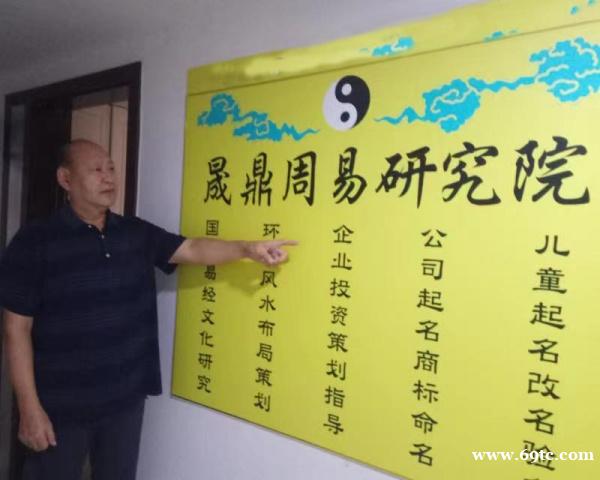 晟鼎周易研究院
国易经文化研究
环风水布局策划
企业投资策划指导
公司起名商标命名
儿童起名改名验
www.69tc.com